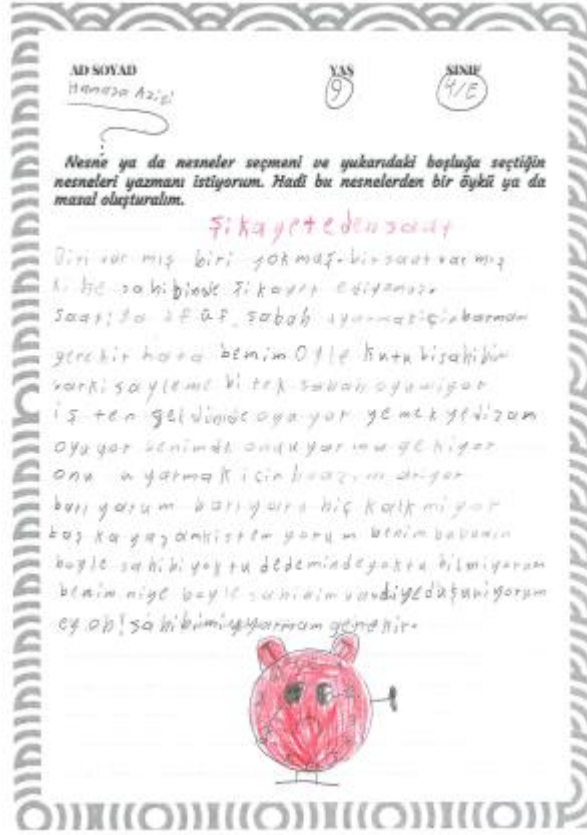 AD SOYAD YAŞ SINIF
Hamza Azizi 9 4/E
Nesne ya da nesneler seçmeni ve yukarıdaki boşluğa seçtiğin
nesneleri yazmanı istiyorum. Hadi bu nesnelerden bir öykü ya da
masal oluşturalım.
Şikayet eden saat
Biri var mış biri yokmuş. bir saat var mış
sahibinde şikayet ediyomuş.
sabah için
gerekir benim Öğle kutu bi sahibim
varki söyleme bi tek sabah oyuwiyor
iş ten geldiminde oyuyor yemek yedizam
oyuyor benimde
onu uyarmak için
barı yorum barı yorum hiç kalk miyor
baş ka istem yorum benim babamın
boyle sahibi yoktu dedemindeyoktu bilmiyorum
benim niye boyle sahibim vardiye düşuniyorum
ey oh! sahibimi uyyarmam gerekir.